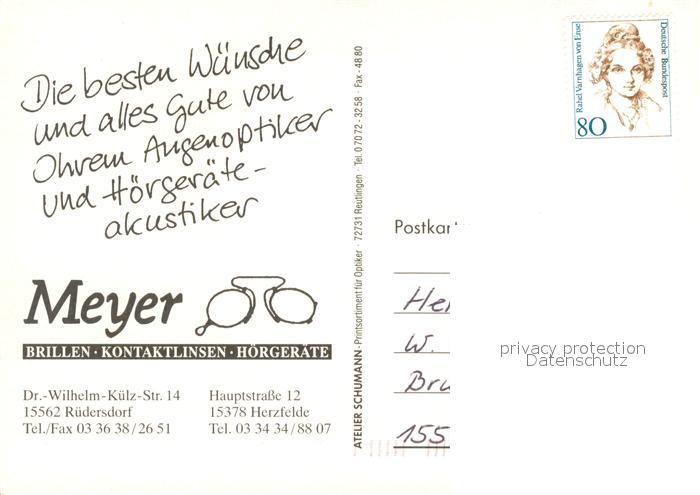 Die besten Wünsche
und alles Gute von
Ohrem Augenoptiker
und Hörgeräte-
akustiker
Meyer
BRILLEN · KONTAKTLINSEN · HÖRGERÄTE
Dr.-Wilhelm-Külz-Str. 14
15562 Rüdersdorf
Tel./Fax 03 36 38/26 51
Hauptstraße 12
15378 Herzfelde
Tel. 03 34 34/88 07
ATELIER SCHUMANN · Printsortiment für Optiker · 72731 Reutlingen · Tel. 0 70 72 - 32 58 · Fax - 48 80
Rahel Varnhagen von Ense
Deutsche Bundespost
80
Postkar
He
W.
Bru
155
privacy protection
Datenschutz